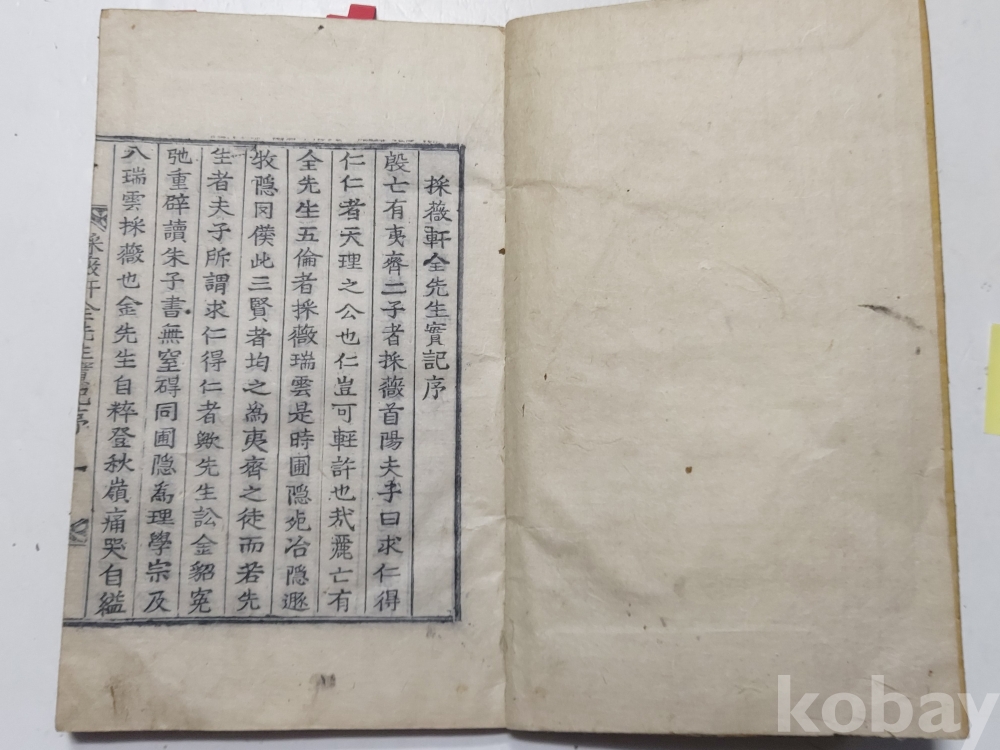 採薇軒全先生實記序
殷亡有夷齊二子者採薇首陽夫子曰求仁得
仁仁者天理之公也仁豈可輕許也哉麗亡有
全先生五倫者採薇瑞雲是時圃隱死冶隱遯
牧隱罔僕此三賢者均之爲夷齊之徒而若先
生者夫子所謂求仁得仁者歟先生訟金貂寃
馳重碎讀朱子書無窒碍同圃隱爲理學宗及
入瑞雲採薇也金先生自粹登秋嶺痛哭自縊
採薇軒全先生實記序 一
kobay